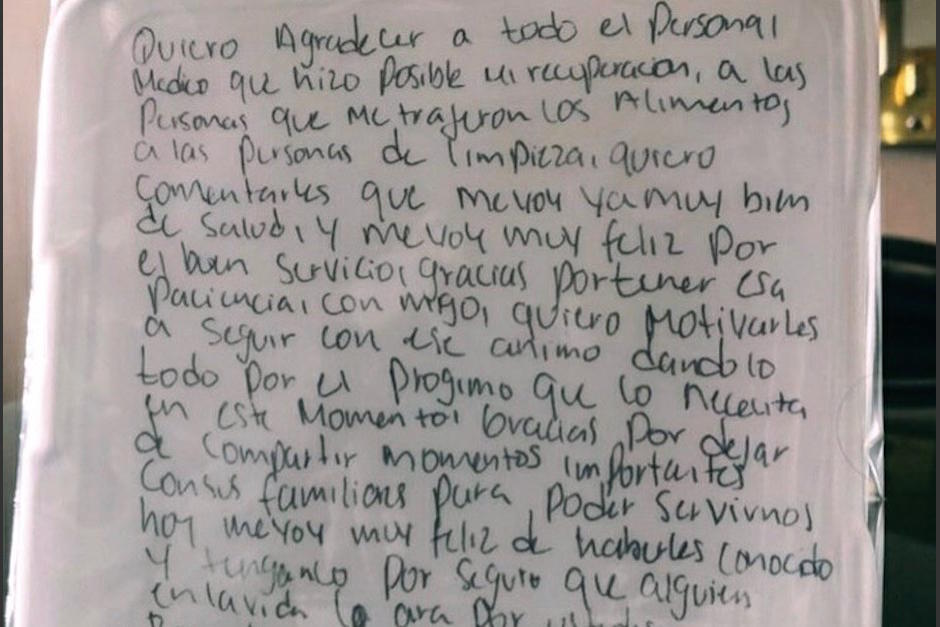 Quiero Agradecer a todo el Personal
Medico que hizo Posible mi recuperacion, a las
Personas que me trajeron los Alimentos
a las personas de limpieza, quiero
Comentarles que mevoy ya muy bien
de Salud, y mevoy muy feliz por
el buen Servicio, gracias portener esa
Paciencia, con migo, quiero Motivarles
a seguir con ese animo dandolo
todo por el Progimo que lo necesita
en este Momento, Gracias por dejar
de compartir momentos importantes
Consus familiares para poder servirnos
hoy mevoy muy feliz de haberles conocido
y tenganlo por seguro que alguien
enlavida lo ara por ustedes